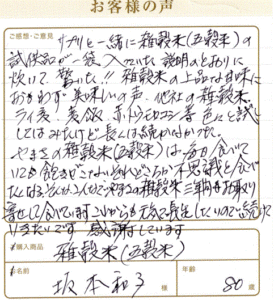 お客様の声
ご感想・ご意見
サプリと一緒に雑穀米(五穀米)の
試供品が一袋入っていた説明のとおりに
炊いて驚いた!!雑穀米の上品な甘味に
おもわず美味しいの声、他社の雑穀米、
ライ麦、麦飯、赤トウモロコシ等色々と試し
てはみたけど長くは続かなかった。
やまさの雑穀米(五穀米)は毎日食べて
いても飽きがこない
不思議と食べ
たくなる
雑穀米
三
お取り
寄せして食べています
長生
したいので続けて
いきたいです 感謝しています
購入商品
雑穀米(五穀米)
お名前
坂本
年齢
80歳
様